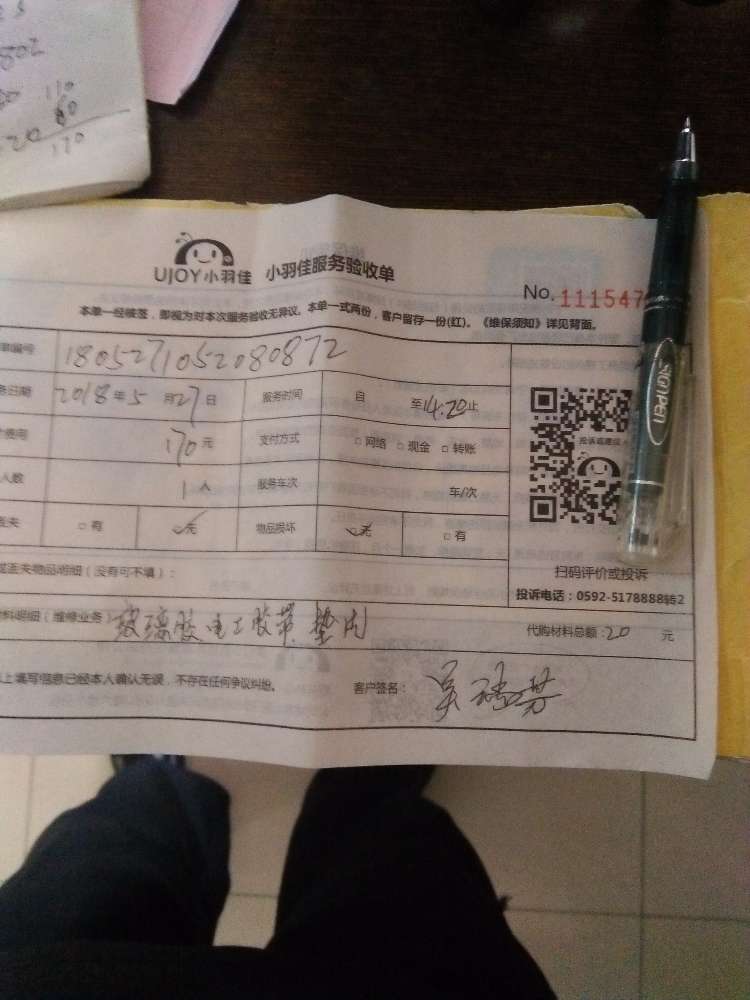 802
110
60
170
UJOY小羽佳 小羽佳服务验收单
No. 111547
本单一经被签，即视为对本次服务验收无异议。本单一式两份，客户留存一份(红)。《维保须知》详见背面。
单编号 1805271052080872
务日期 2018年5月27日 服务时间 自 至14:20止
费用 170元 支付方式 □网络 □现金 □转账
人数 1人 服务车次 车/次
丢失 □有 无 物品损坏 无 □有
投诉或建议
扫码评价或投诉
投诉电话：0592-5178888转2
丢失物品明细（没有可不填）：
料明细（维修业务） 玻璃胶 电工胶带 垫片
代购材料总额：20 元
上填写信息已经本人确认无误，不存在任何争议纠纷。 客户签名：
SIGNPEN